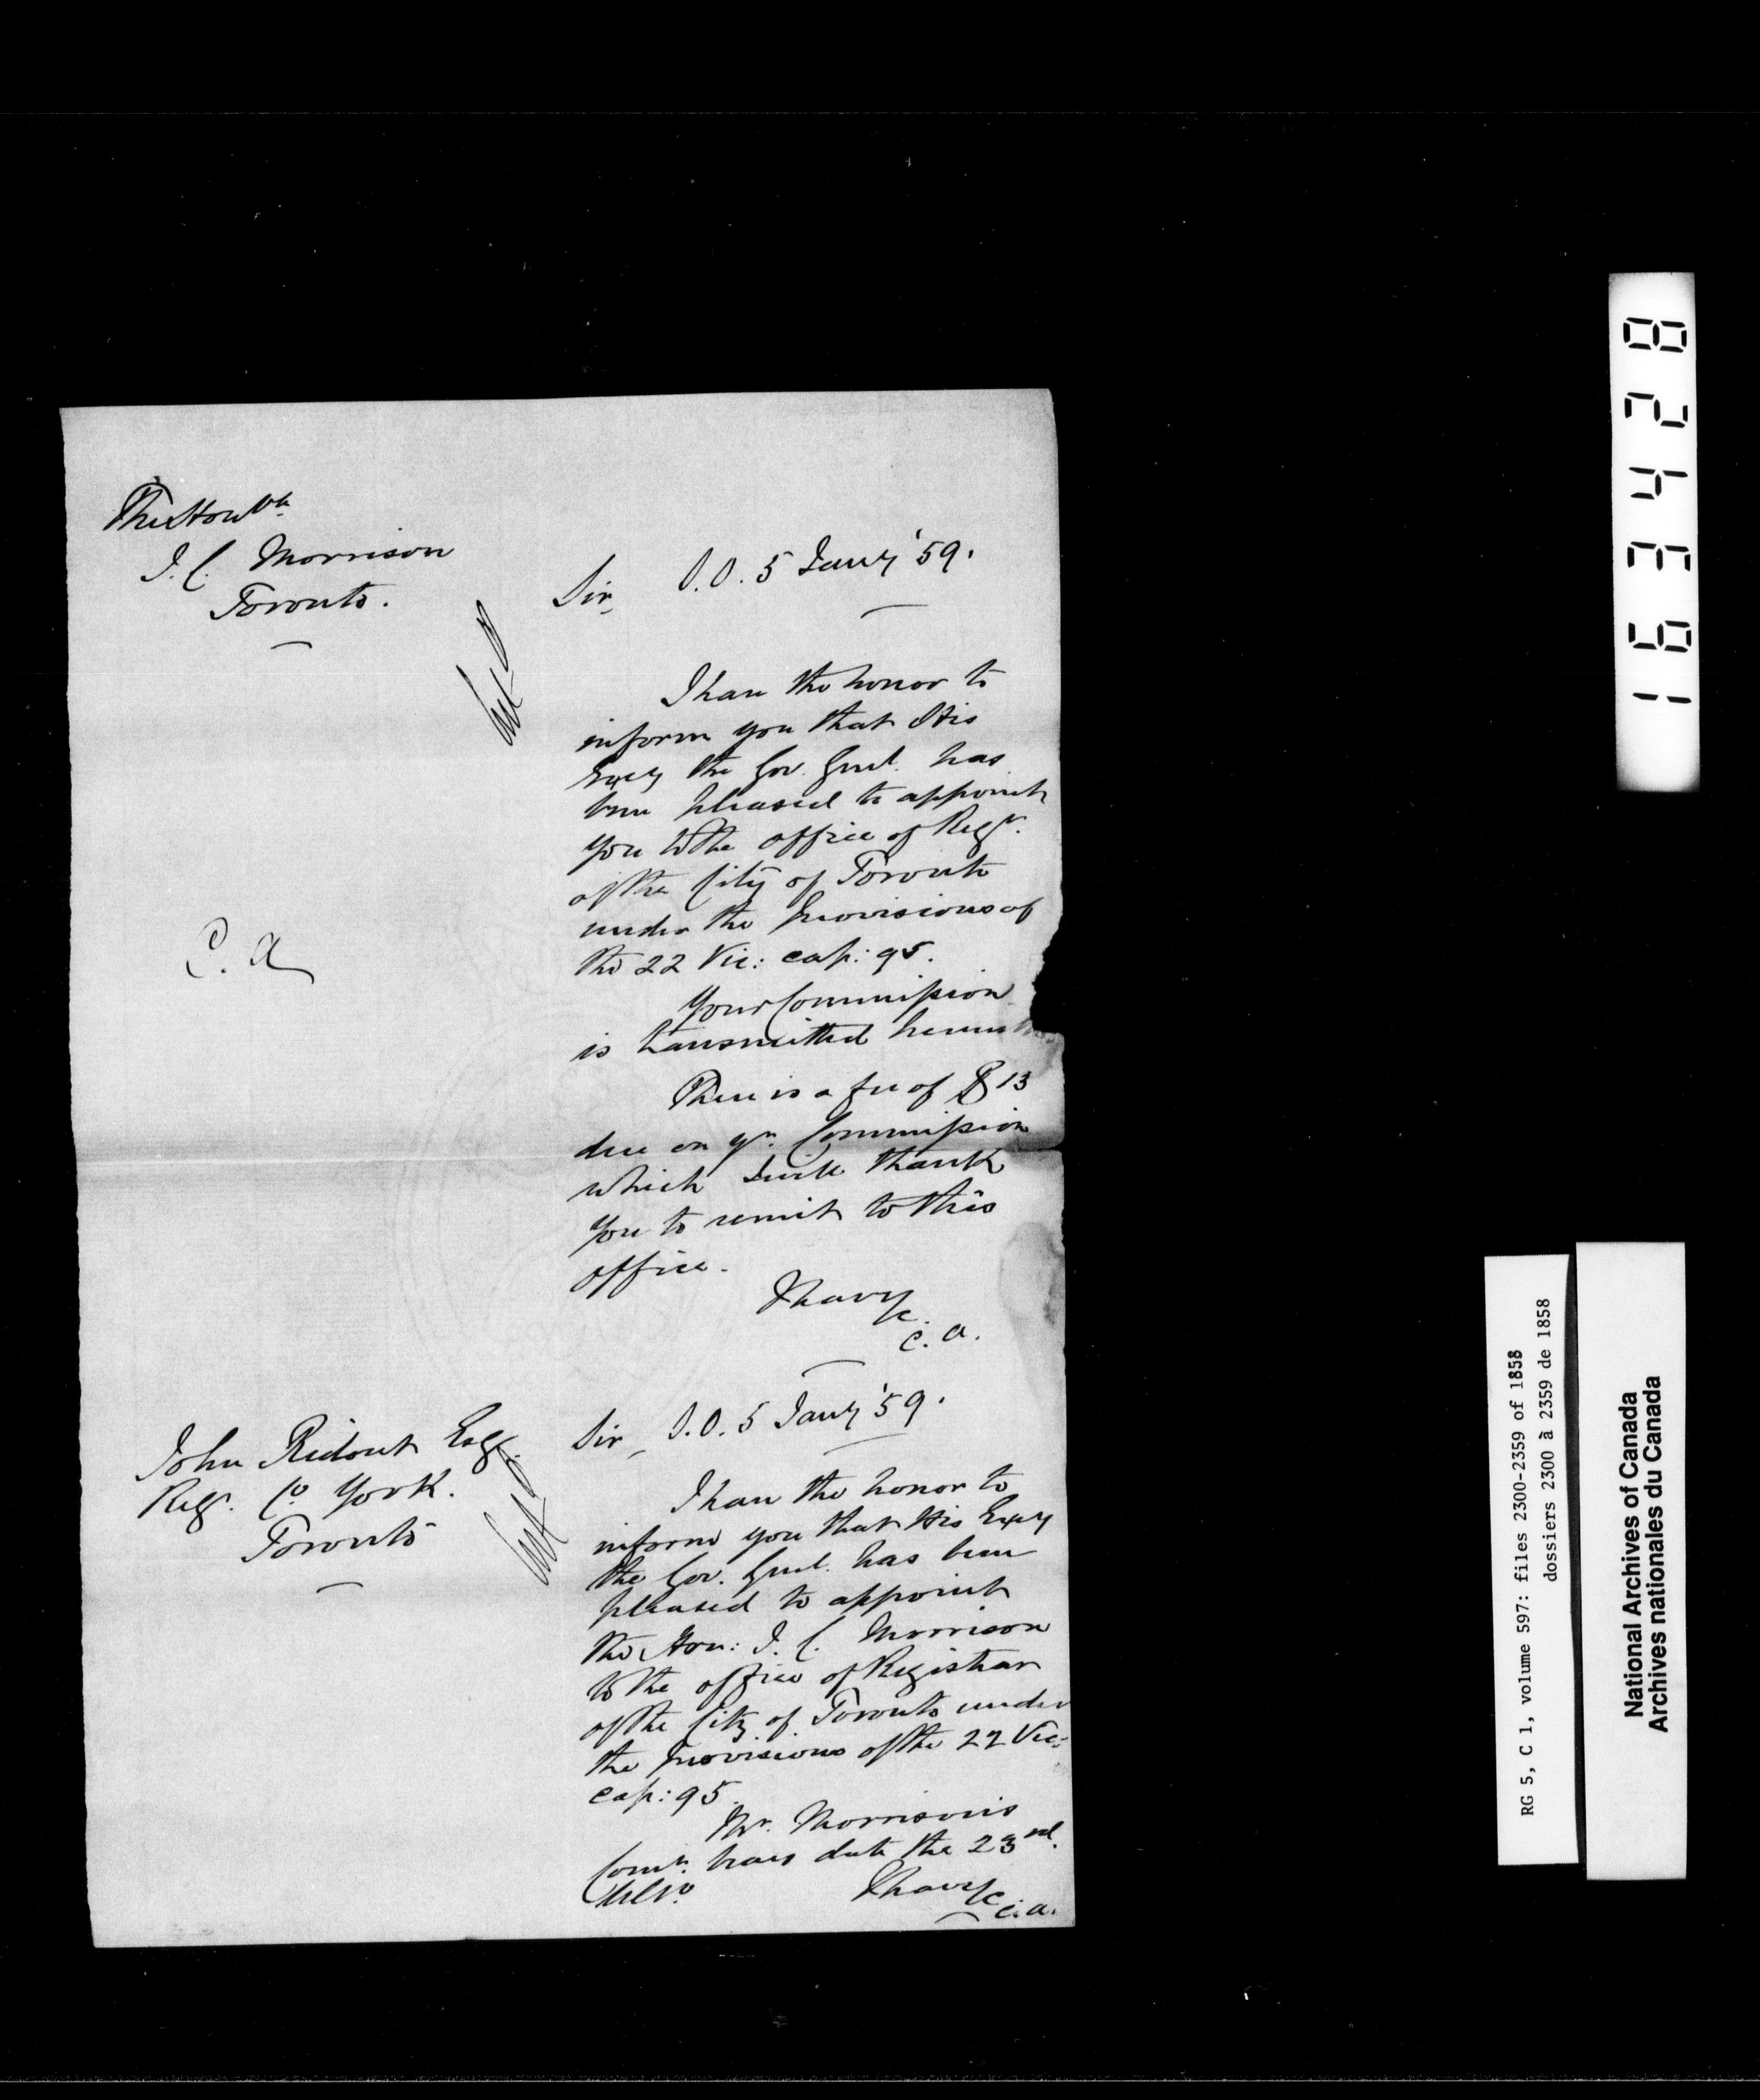 The Honble
J. C. Morrison
Toronto.
Sir, S.O. 5 Jany '59.
I have the honor to
inform you that His
Excy the Gov. Genl. has
been pleased to appoint
you to the office of Regr.
of the City of Toronto
under the provisions of
the 22 Vic: cap: 95.
Your Commission
is transmitted herewith
There is a fee of $13
due on yr. Commission
which I will thank
you to remit to this
office.
I have &c
C. A.
C. A
John Ridout Esqr.
Regr. Co York.
Toronto
Sir, S.O. 5 Jany '59.
I have the honor to
inform you that His Excy
the Gov. Genl. has been
pleased to appoint
the Hon: J. C. Morrison
to the office of Registrar
of the City of Toronto under
the provisions of the 22 Vic:
cap: 95.
Mr. Morrison's
Comn. bears date the 23rd.
Ulto.
I have &c
C. A.
163428
RG 5, C 1, volume 597: files 2300-2359 of 1858
dossiers 2300 à 2359 de 1858
National Archives of Canada
Archives nationales du Canada